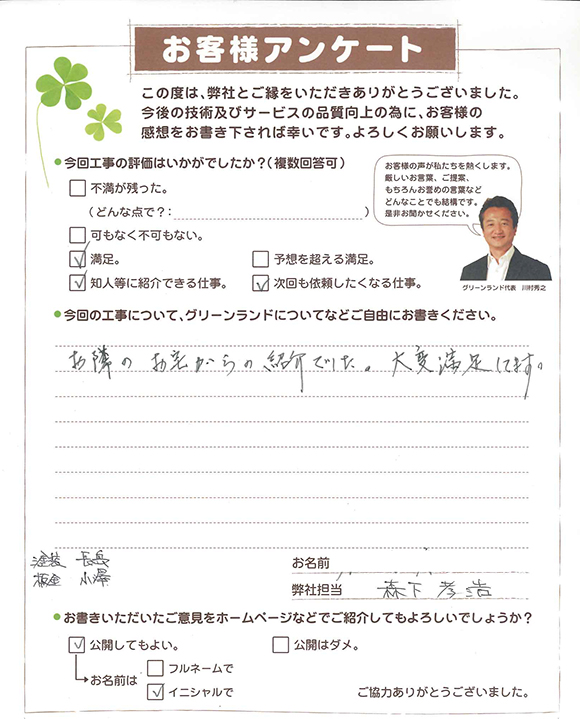 お客様アンケート
この度は、弊社とご縁をいただきありがとうございました。
今後の技術及びサービスの品質向上の為に、お客様の
感想をお書き下されば幸いです。よろしくお願いします。
今回工事の評価はいかがでしたか?(複数回答可)
不満が残った。
(どんな点で?: )
可もなく不可もない。
満足。 予想を超える満足。
知人等に紹介できる仕事。 次回も依頼したくなる仕事。
お客様の声が私たちを熱くします。
厳しいお言葉、ご提案、
もちろんお誉めの言葉など
どんなことでも結構です。
是非お聞かせください。
グリーンランド代表 川村秀之
今回の工事について、グリーンランドについてなどご自由にお書きください。
お隣のお宅からの紹介でした。大変満足してます。
塗装 長兵
板金 小澤
お名前
弊社担当 森下孝浩
お書きいただいたご意見をホームページなどでご紹介してもよろしいでしょうか?
公開してもよい。 公開はダメ。
お名前は
フルネームで
イニシャルで
ご協力ありがとうございました。